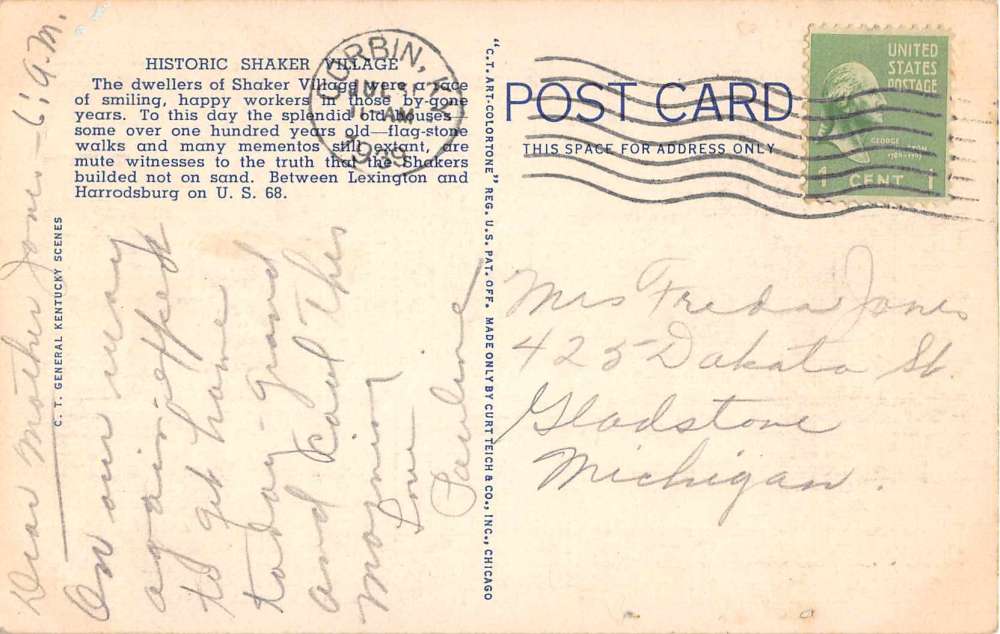 HISTORIC SHAKER VILLAGE
The dwellers of Shaker Village were a race
of smiling, happy workers in those by-gone
years. To this day the splendid old houses—
some over one hundred years old—flag-stone
walks and many mementos still extant, are
mute witnesses to the truth that the Shakers
builded not on sand. Between Lexington and
Harrodsburg on U. S. 68.
C. T. GENERAL KENTUCKY SCENES
Dear Mother Jones – 6: A.M.
On our way
again – expect
to get home
today – grand
and cool this
morning
Love
Pauline
"C. T. ART-COLORTONE" REG. U. S. PAT. OFF. MADE ONLY BY CURT TEICH & CO., INC., CHICAGO
CORBIN, KY.
11 AM
1939
POST CARD
THIS SPACE FOR ADDRESS ONLY
UNITED
STATES
POSTAGE
GEORGE WASHINGTON
1 CENT 1
Mrs Freda Jones
425 Dakota St.
Gladstone
Michigan.